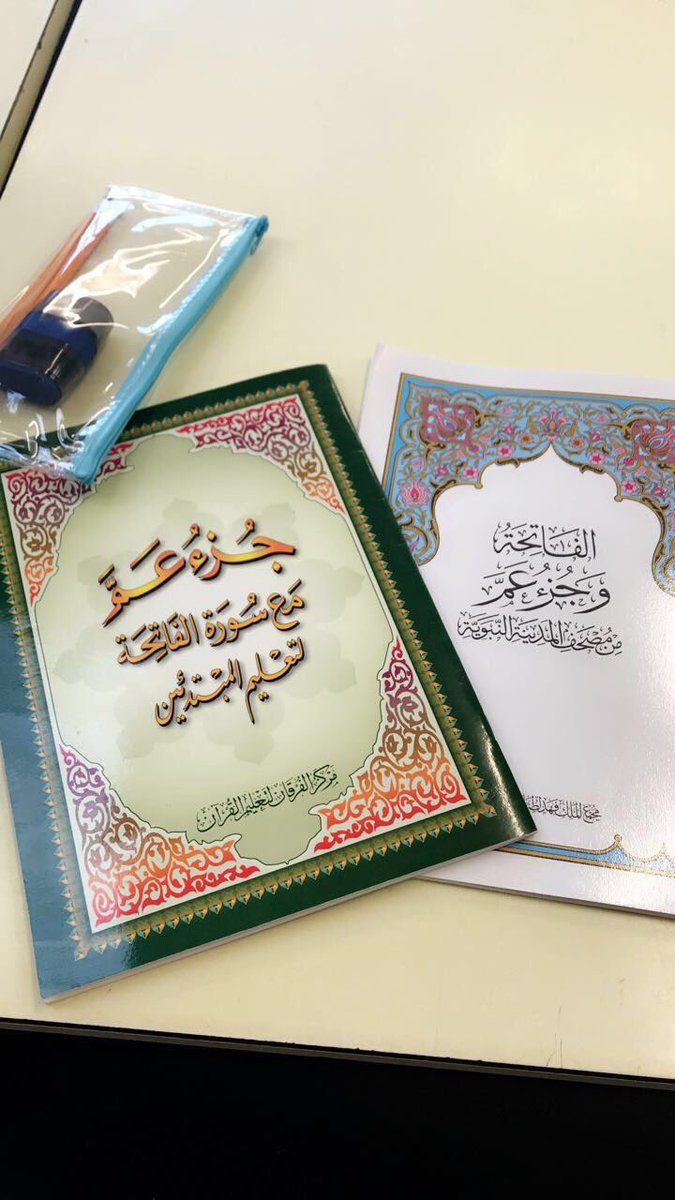 جُزْءُ عَمَّ
مَعَ سُورَةِ الفَاتِحَة
لتَعْلِيمِ المُبْتَدِئِين
مَرْكَزُ الفُرْقَانِ لِتَعْلِيمِ القُرْآن
الفَاتِحَةُ
وَجُزْءُ عَمَّ
مِن مُصْحَفِ المَدِينَةِ النَّبَوِيَّةِ
مجمع الملك فهد